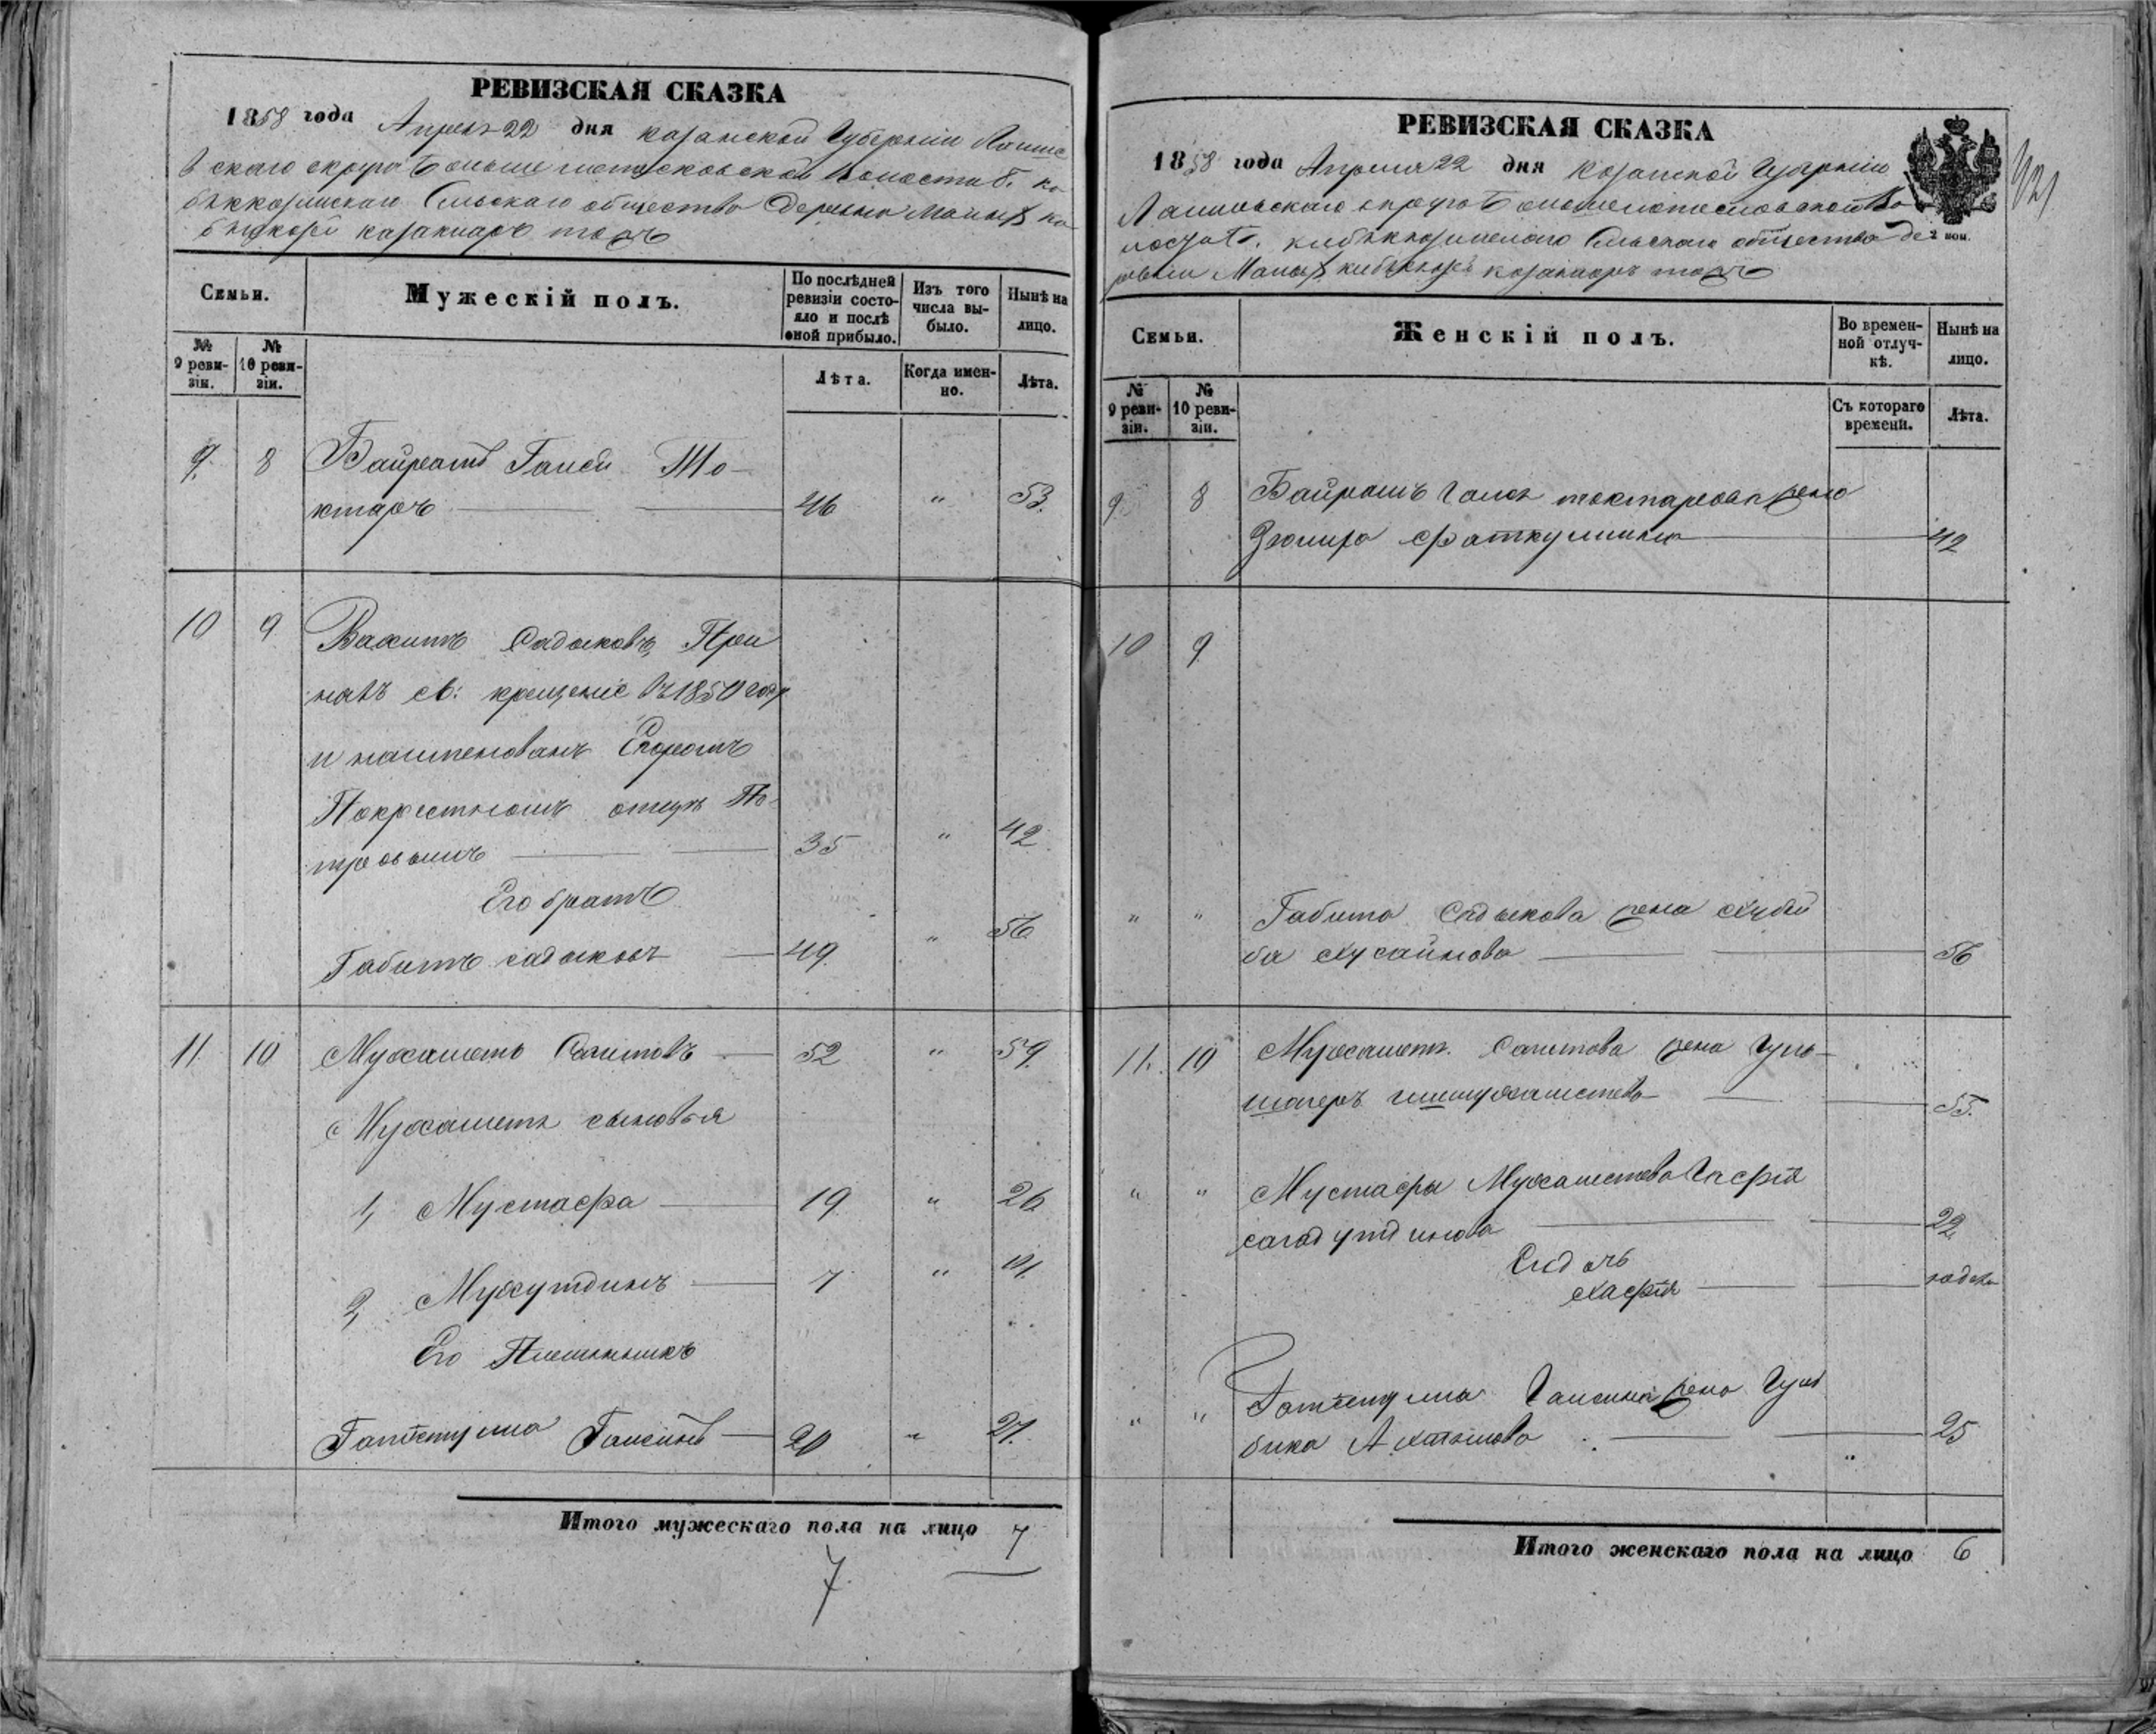 РЕВИЗСКАЯ СКАЗКА
1858 года Апреля 22 дня Казанской Губернiи Лаише
вскаго округа
бѣккозинскаго Сельскаго общества Деревни Малыхъ Ки
бѣккозей казаклар тожъ
Семьи.
Мужескiй полъ.
По послѣдней ревизiи состояло и послѣ оной прибыло.
Изъ того числа выбыло.
Нынѣ на лицо.
№ 9 ревизiи.
№ 10 ревизiи.
Лѣта.
Когда именно.
Лѣта.
9. 8 Байрашъ Гали То-
ктаръ 46 " 53.
10 9 Вахитъ Садыковъ, При
нялъ св: крещенiе въ 1850 году
и наименованъ Егоромъ
Покрестномъ отцѣ Пе-
тровымъ 35 " 42
Его братъ
Габитъ садыковъ 49 " 56
11. 10 Мухаметь Сагитовъ 52 " 59.
Мухаметя сыновья
1, Мустафа 19 " 26
2, Мухутдинъ 7 " 14.
Его Племянникъ
20 " 27.
Итого мужескаго пола на лицо 7
7.
РЕВИЗСКАЯ СКАЗКА
1858 года Апреля 22 дня Казанской Губернiи
Лаишевскаго округа
Сельскаго общества де
ревни Малыхъ кибѣккозей казакларъ тожъ
2 коп.
921
Семьи.
Женскiй полъ.
Во временной отлучкѣ.
Нынѣ на лицо.
№ 9 ревизiи.
№ 10 ревизiи.
Съ котораго времени.
Лѣта.
9. 8 Байрашъ Гали токтарова жена
Фаткуллина 42
10 9
" " Габита Садыкова жена Хубей
ба Хусаинова 56
11. 10 Мухаметя Сагитова жена Гуль-
55.
" " Мустафы Мухаметова
сагадутдинова 22,
Ея дочь
Хафiя
" " жена Гуль
бика 25
"
Итого женскаго пола на лицо 6